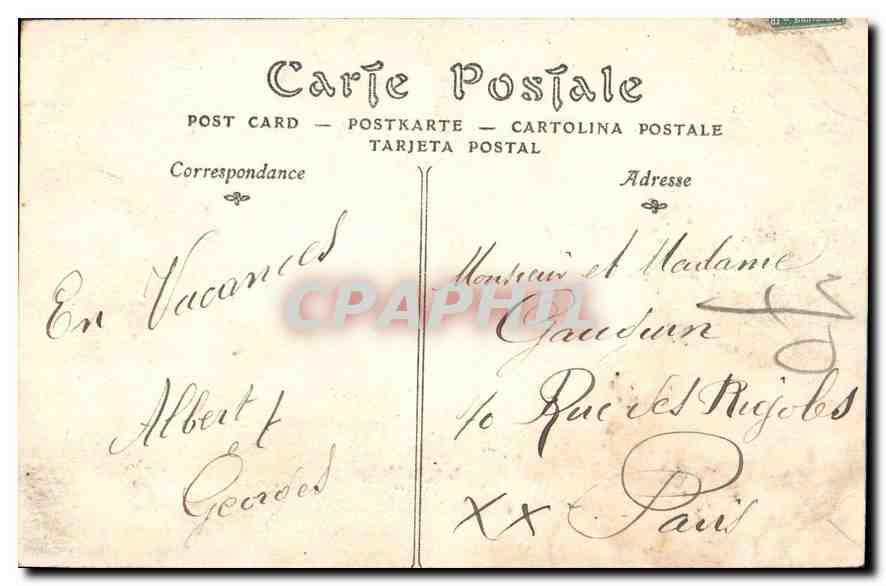 Carte Postale
POST CARD — POSTKARTE — CARTOLINA POSTALE
TARJETA POSTAL
Correspondance
Adresse
En Vacances
Albert &
Georges
Monsieur et Madame
10 Rue des Rigoles
XX e Paris
CPAPHIL